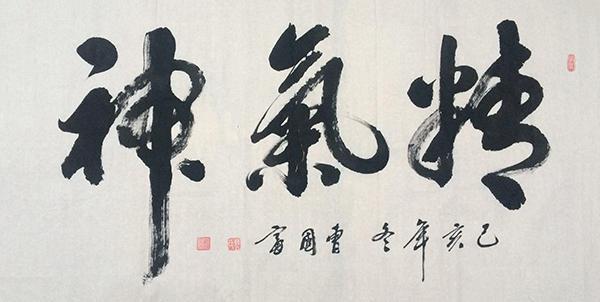 精氣神
己亥年冬 曹國富